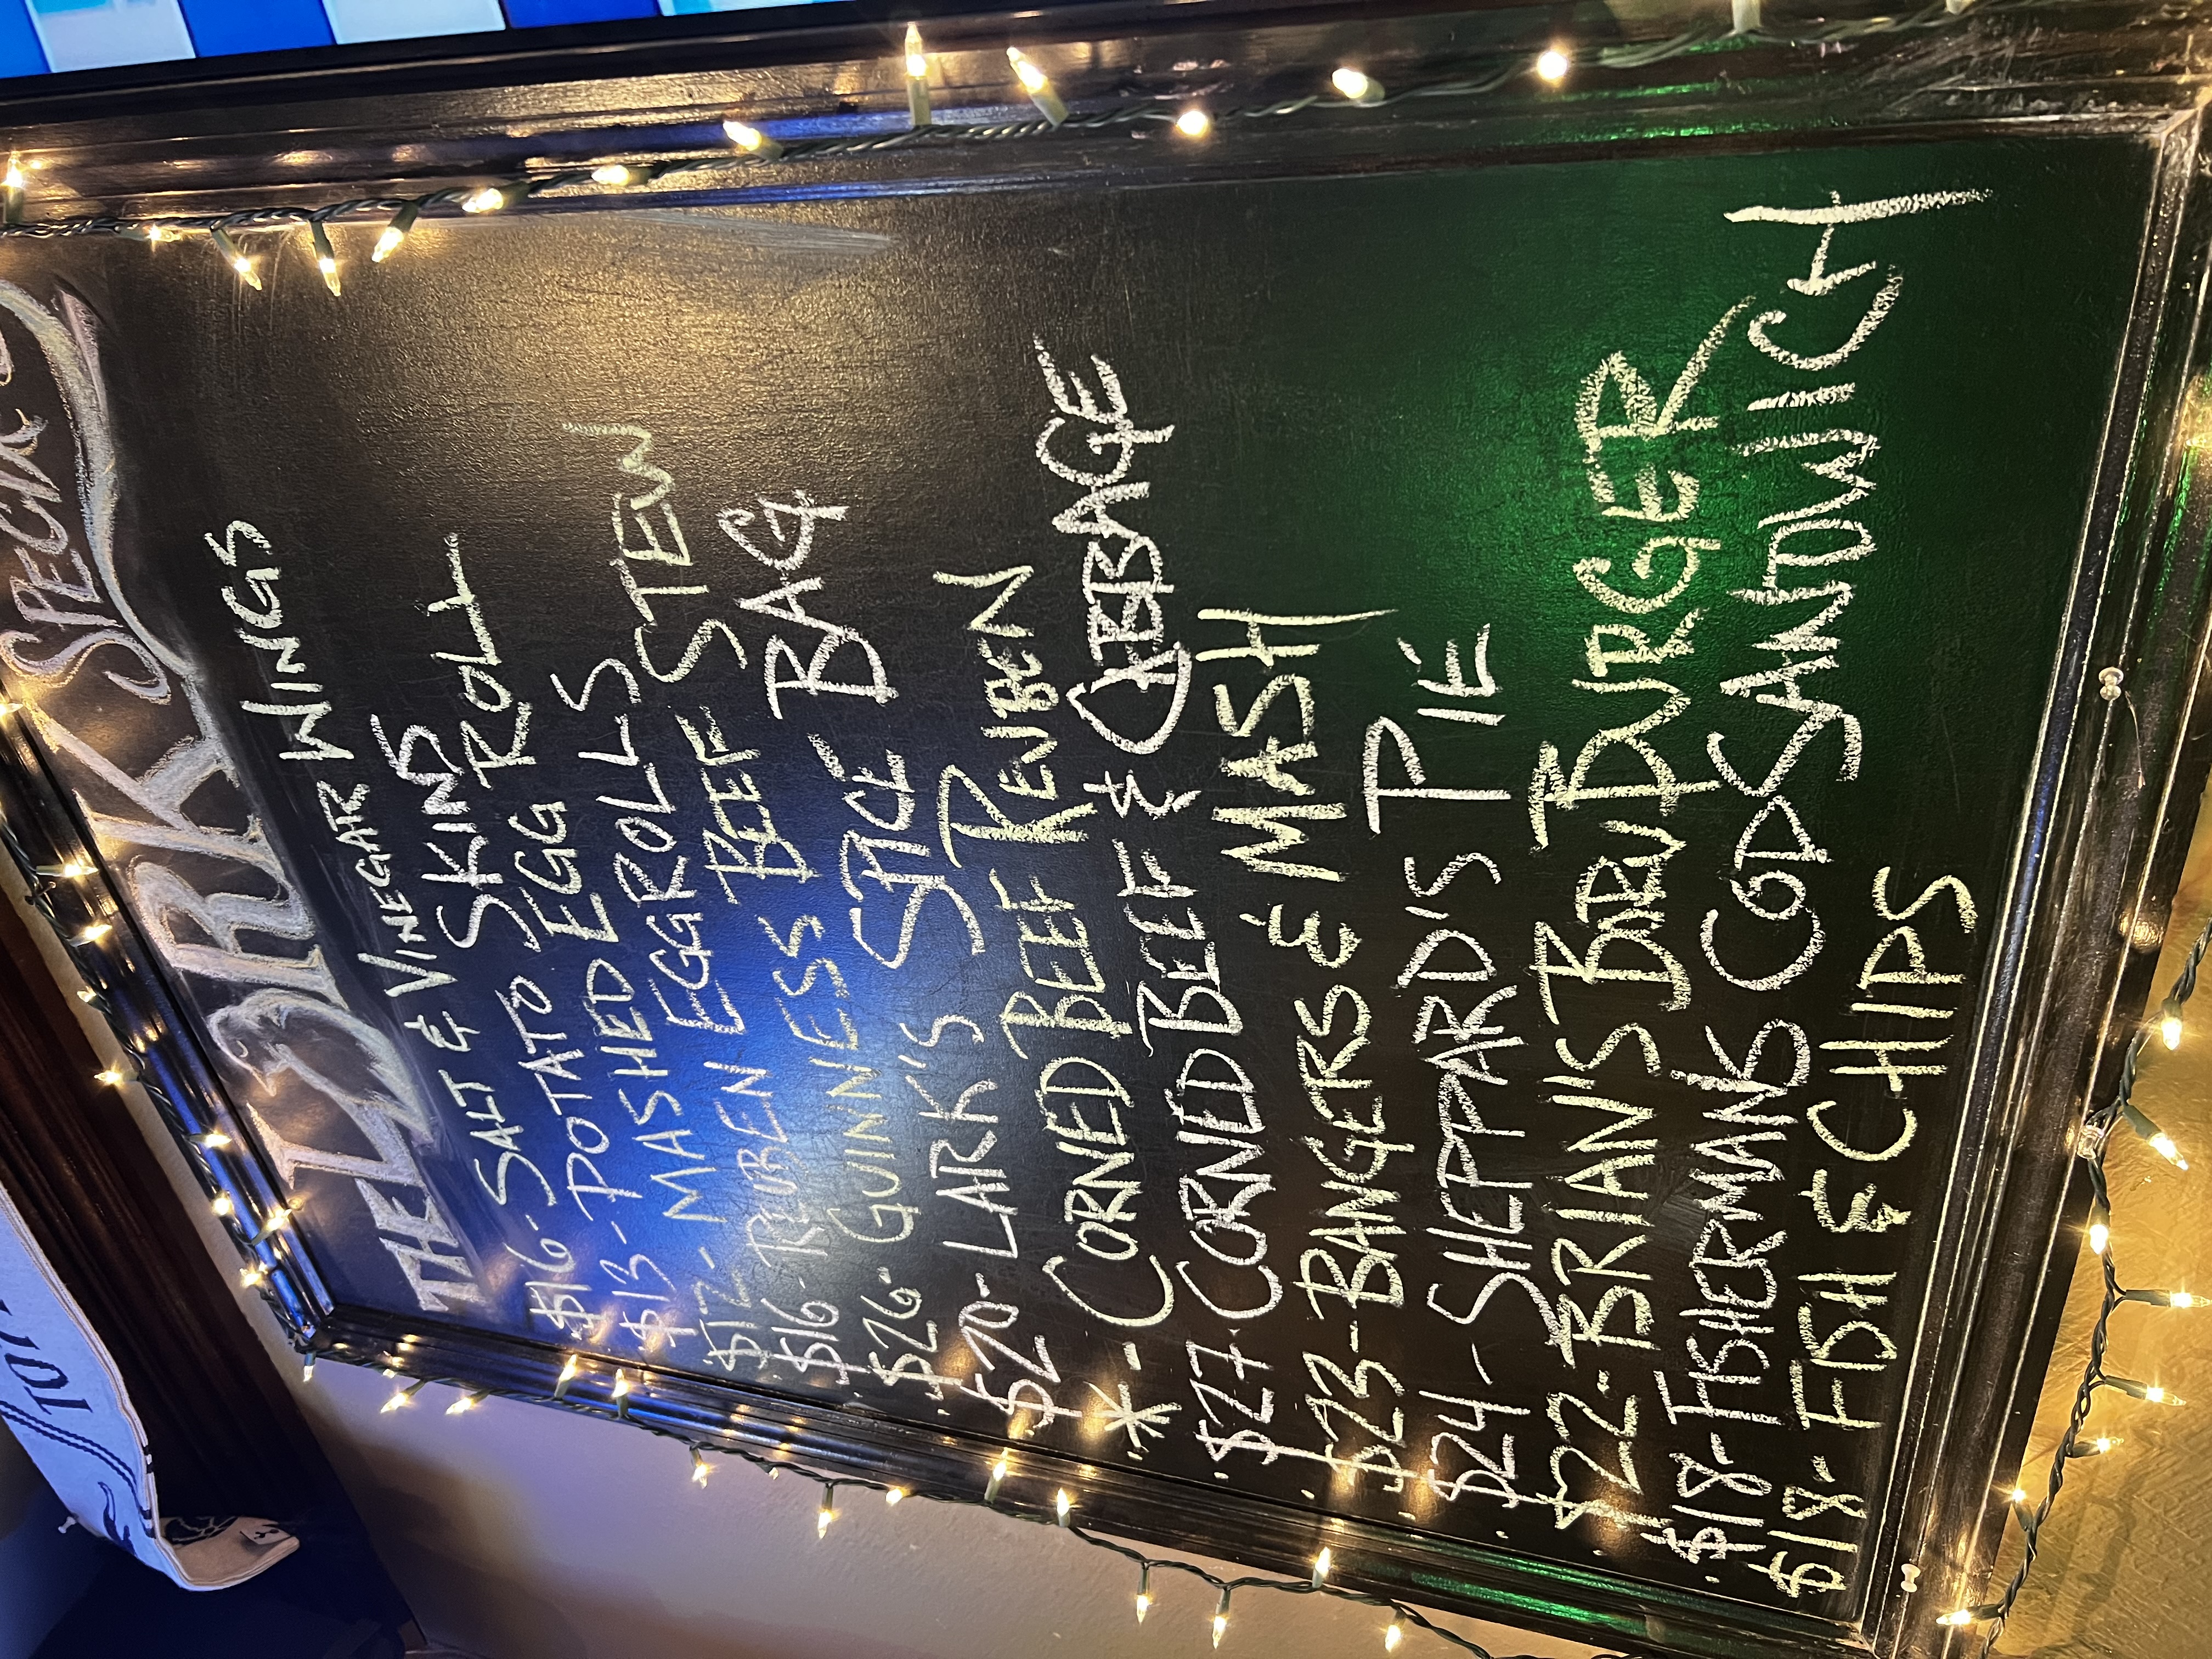 THE LARK SPECIALS
$16 - SALT & VINEGAR WINGS
$13 - POTATO SKINS
$13 - MASHED EGG ROLL
$12 - REUBEN EGGROLLS
$16 - GUINNESS BEEF STEW
$26 - LARK'S SPICE BAG
$20 - CORNED BEEF REUBEN
* - CORNED BEEF & CABBAGE
$27 - BANGERS & MASH
$23 - SHEPPARD'S PIE
$24 - BRIAN'S BARU BURGER
$22 - FISHERMANS COD SANDWICH
$18 - FISH & CHIPS
$18 -